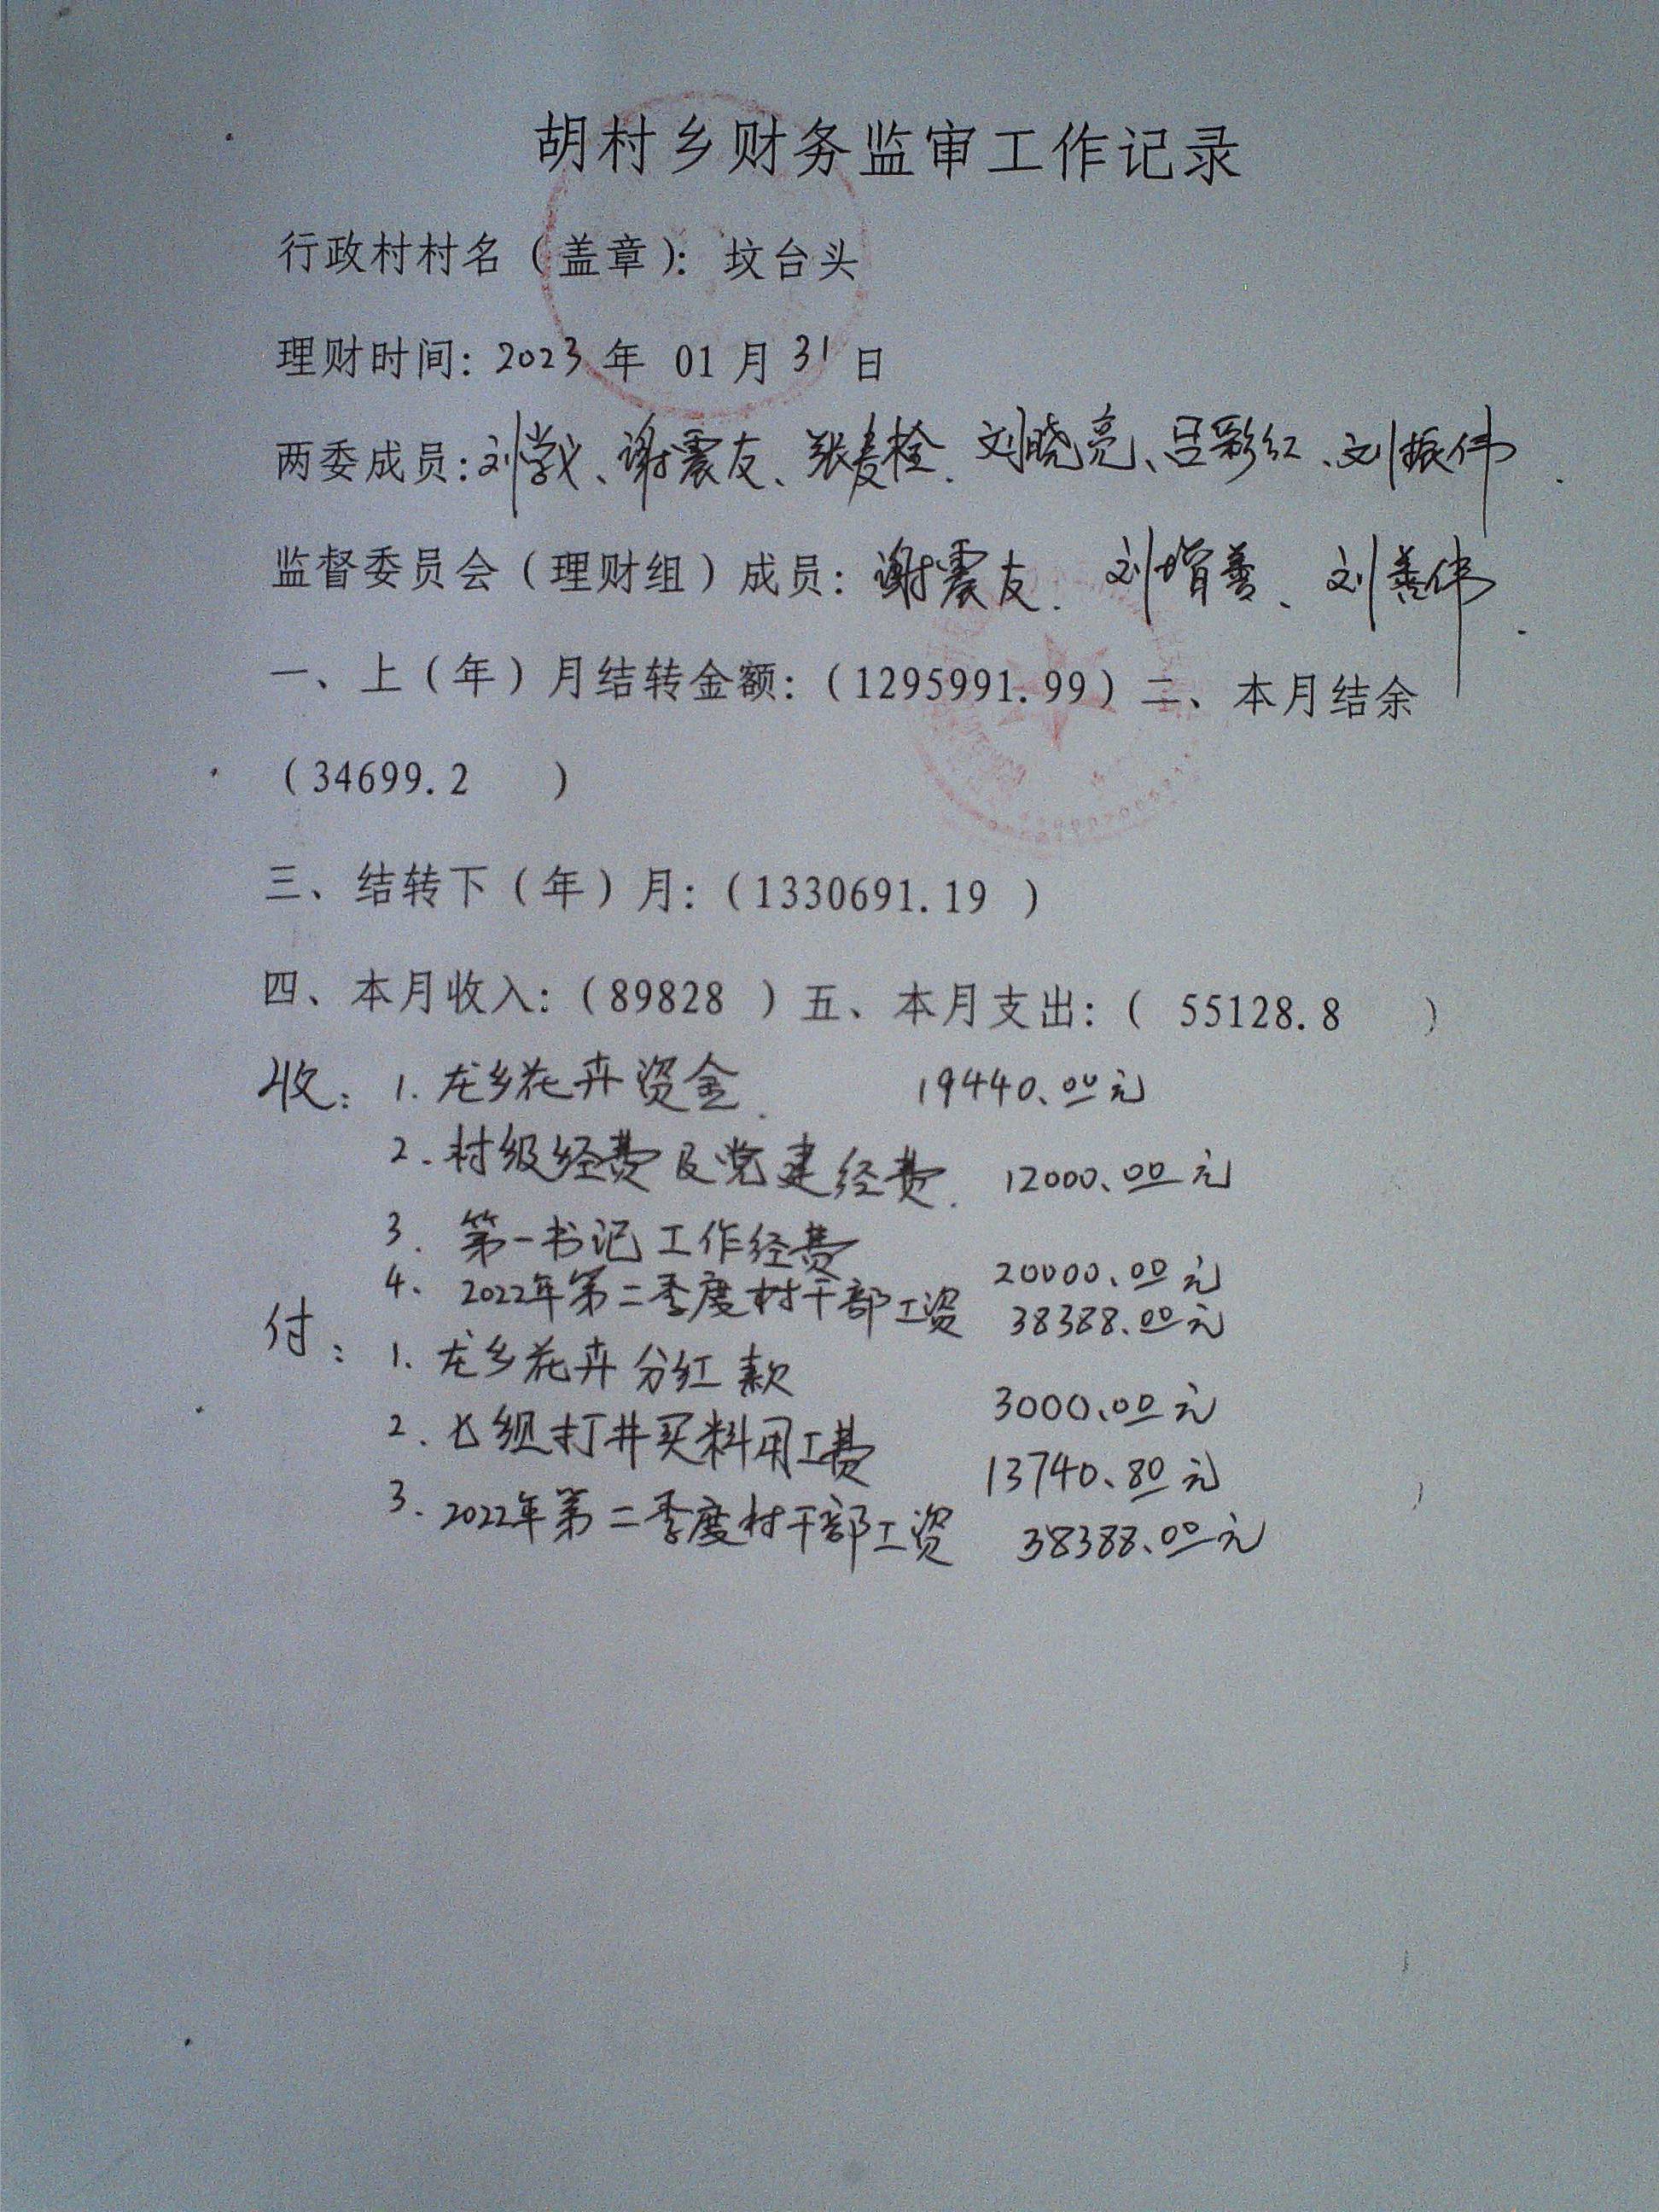 胡村乡财务监审工作记录
行政村村名（盖章）：坟台头
理财时间：2023年 01月31日
两委成员：刘学义、谢震友、张麦栓、刘晓亮、吕彩红、刘振伟.
监督委员会（理财组）成员：谢震友. 刘增善、刘善伟.
一、上（年）月结转金额：（1295991.99）二、本月结余
（34699.2 ）
三、结转下（年）月：（1330691.19 ）
四、本月收入：（89828 ）五、本月支出：（ 55128.8 ）
收：1. 龙乡花卉资金. 19440.00元
2. 村级经费及党建经费. 12000.00元
3. 第一书记工作经费 20000.00元
4. 2022年第二季度村干部工资 38388.00元
付：1. 龙乡花卉分红款 3000.00元
2. 七组打井买料用工费 13740.80元
3. 2022年第二季度村干部工资 38388.00元